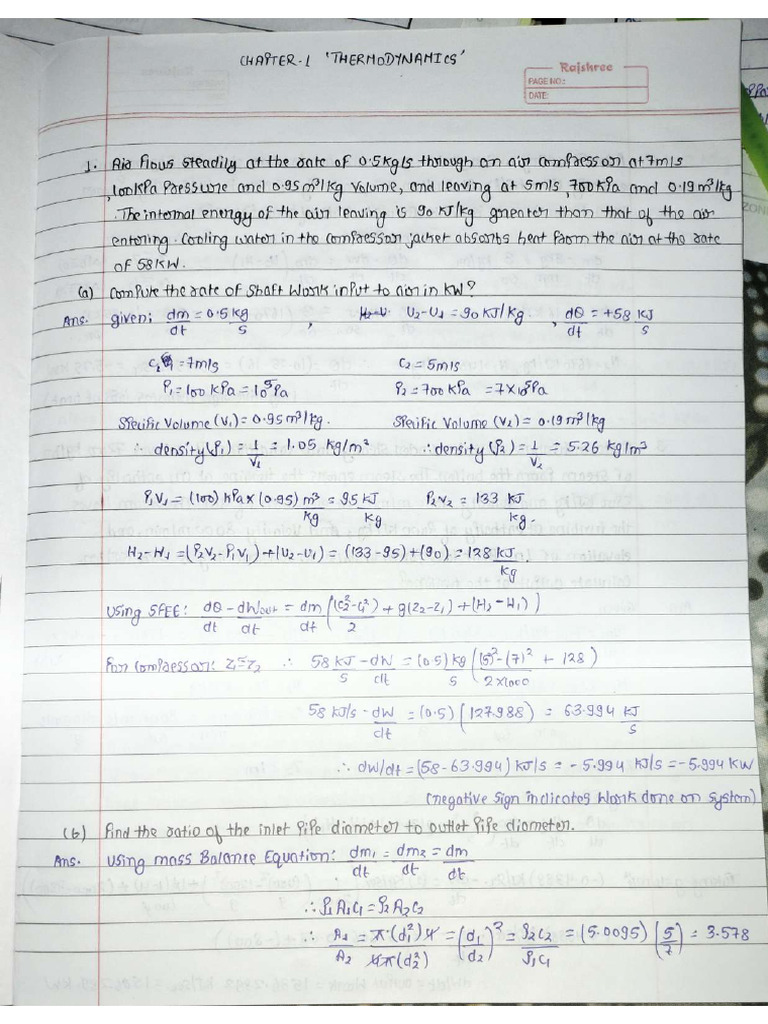 CHAPTER-1 'THERMODYNAMICS'
Rajshree
PAGE NO.:
DATE:
1. Air flows steadily at the rate of 0.5kg/s through an air compressor at 7m/s
,100kPa Pressure and 0.95 m³/kg Volume, and leaving at 5m/s, 700kPa and 0.19 m³/kg
.The internal energy of the air leaving is 90 kJ/kg greater than that of the air
entering. Cooling water in the compressor jacket absorbs heat from the air at the rate
of 58kW.
(a) Compute the rate of shaft work input to air in kW?
Ans. given: dm/dt = 0.5 kg/s , U2-U1 = 90 kJ/kg , dQ/dt = +58 kJ/s
C1 = 7m/s C2 = 5m/s
P1 = 100 kPa = 10⁵Pa P2 = 700 kPa = 7×10⁵Pa
Specific Volume (V1) = 0.95 m³/kg. Specific Volume (V2) = 0.19 m³/kg
∴ density (ρ1) = 1/V1 = 1.05 kg/m² ∴ density (ρ2) = 1/V2 = 5.26 kg/m³
P1V1 = (100) kPa × (0.95) m³/kg = 95 kJ/kg P2V2 = 133 kJ/kg.
H2-H1 = (P2V2-P1V1)+(U2-U1) = (133-95)+(90) = 128 kJ/kg.
Using SFEE: dQ/dt - dWout/dt = dm/dt ((C2²-C1²)/2 + g(Z2-Z1) + (H2-H1))
For compressor: Z1=Z2 ∴ 58 kJ/s - dW/dt = (0.5) kg/s ((5)²-(7)²/2×1000 + 128)
58 kJ/s - dW/dt = (0.5) (127.988) = 63.994 kJ/s
∴ dW/dt = (58-63.994) kJ/s = -5.994 kJ/s = -5.994 kW
(negative sign indicates work done on system)
(b) Find the ratio of the inlet pipe diameter to outlet pipe diameter.
Ans. Using mass Balance Equation: dm1/dt = dm2/dt = dm/dt
∴ ρ1A1C1 = ρ2A2C2
∴ A1/A2 = π(d1²)4/4π(d2²) = (d1/d2)² = ρ2C2/ρ1C1 = (5.0095) (5/7) = 3.578